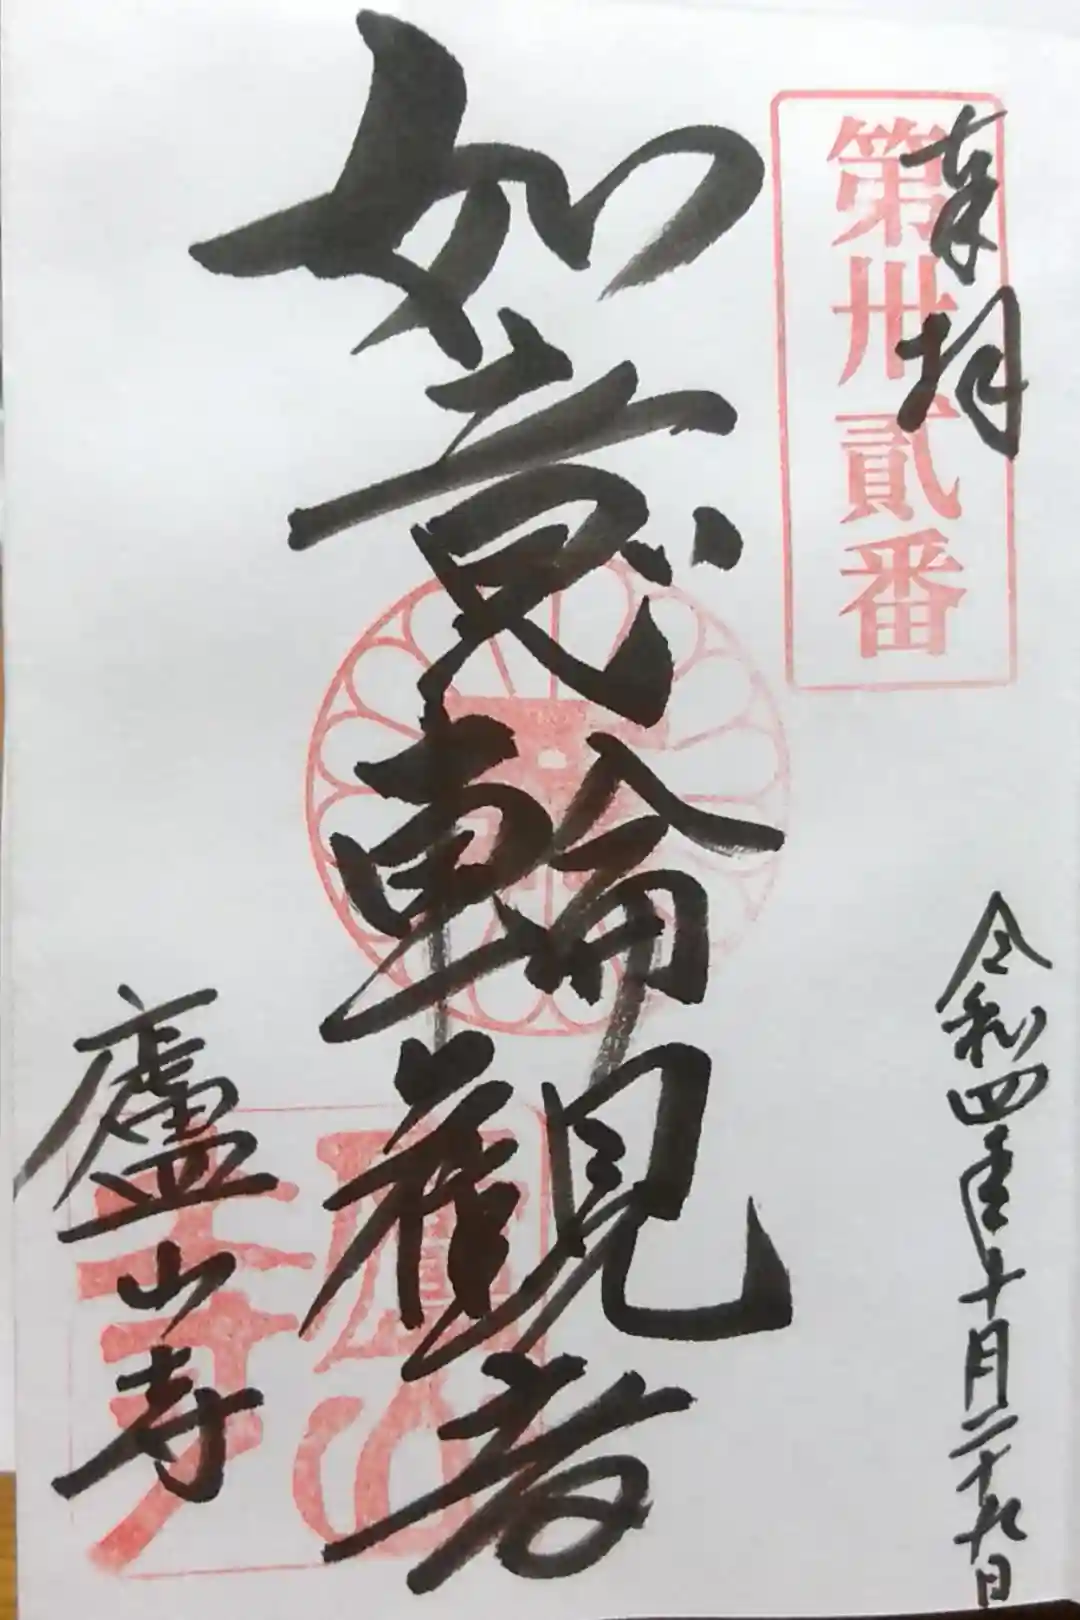 奉拝
第卅貳番
令和四年十月二十九日
如意輪観音
廬山寺
廬山寺